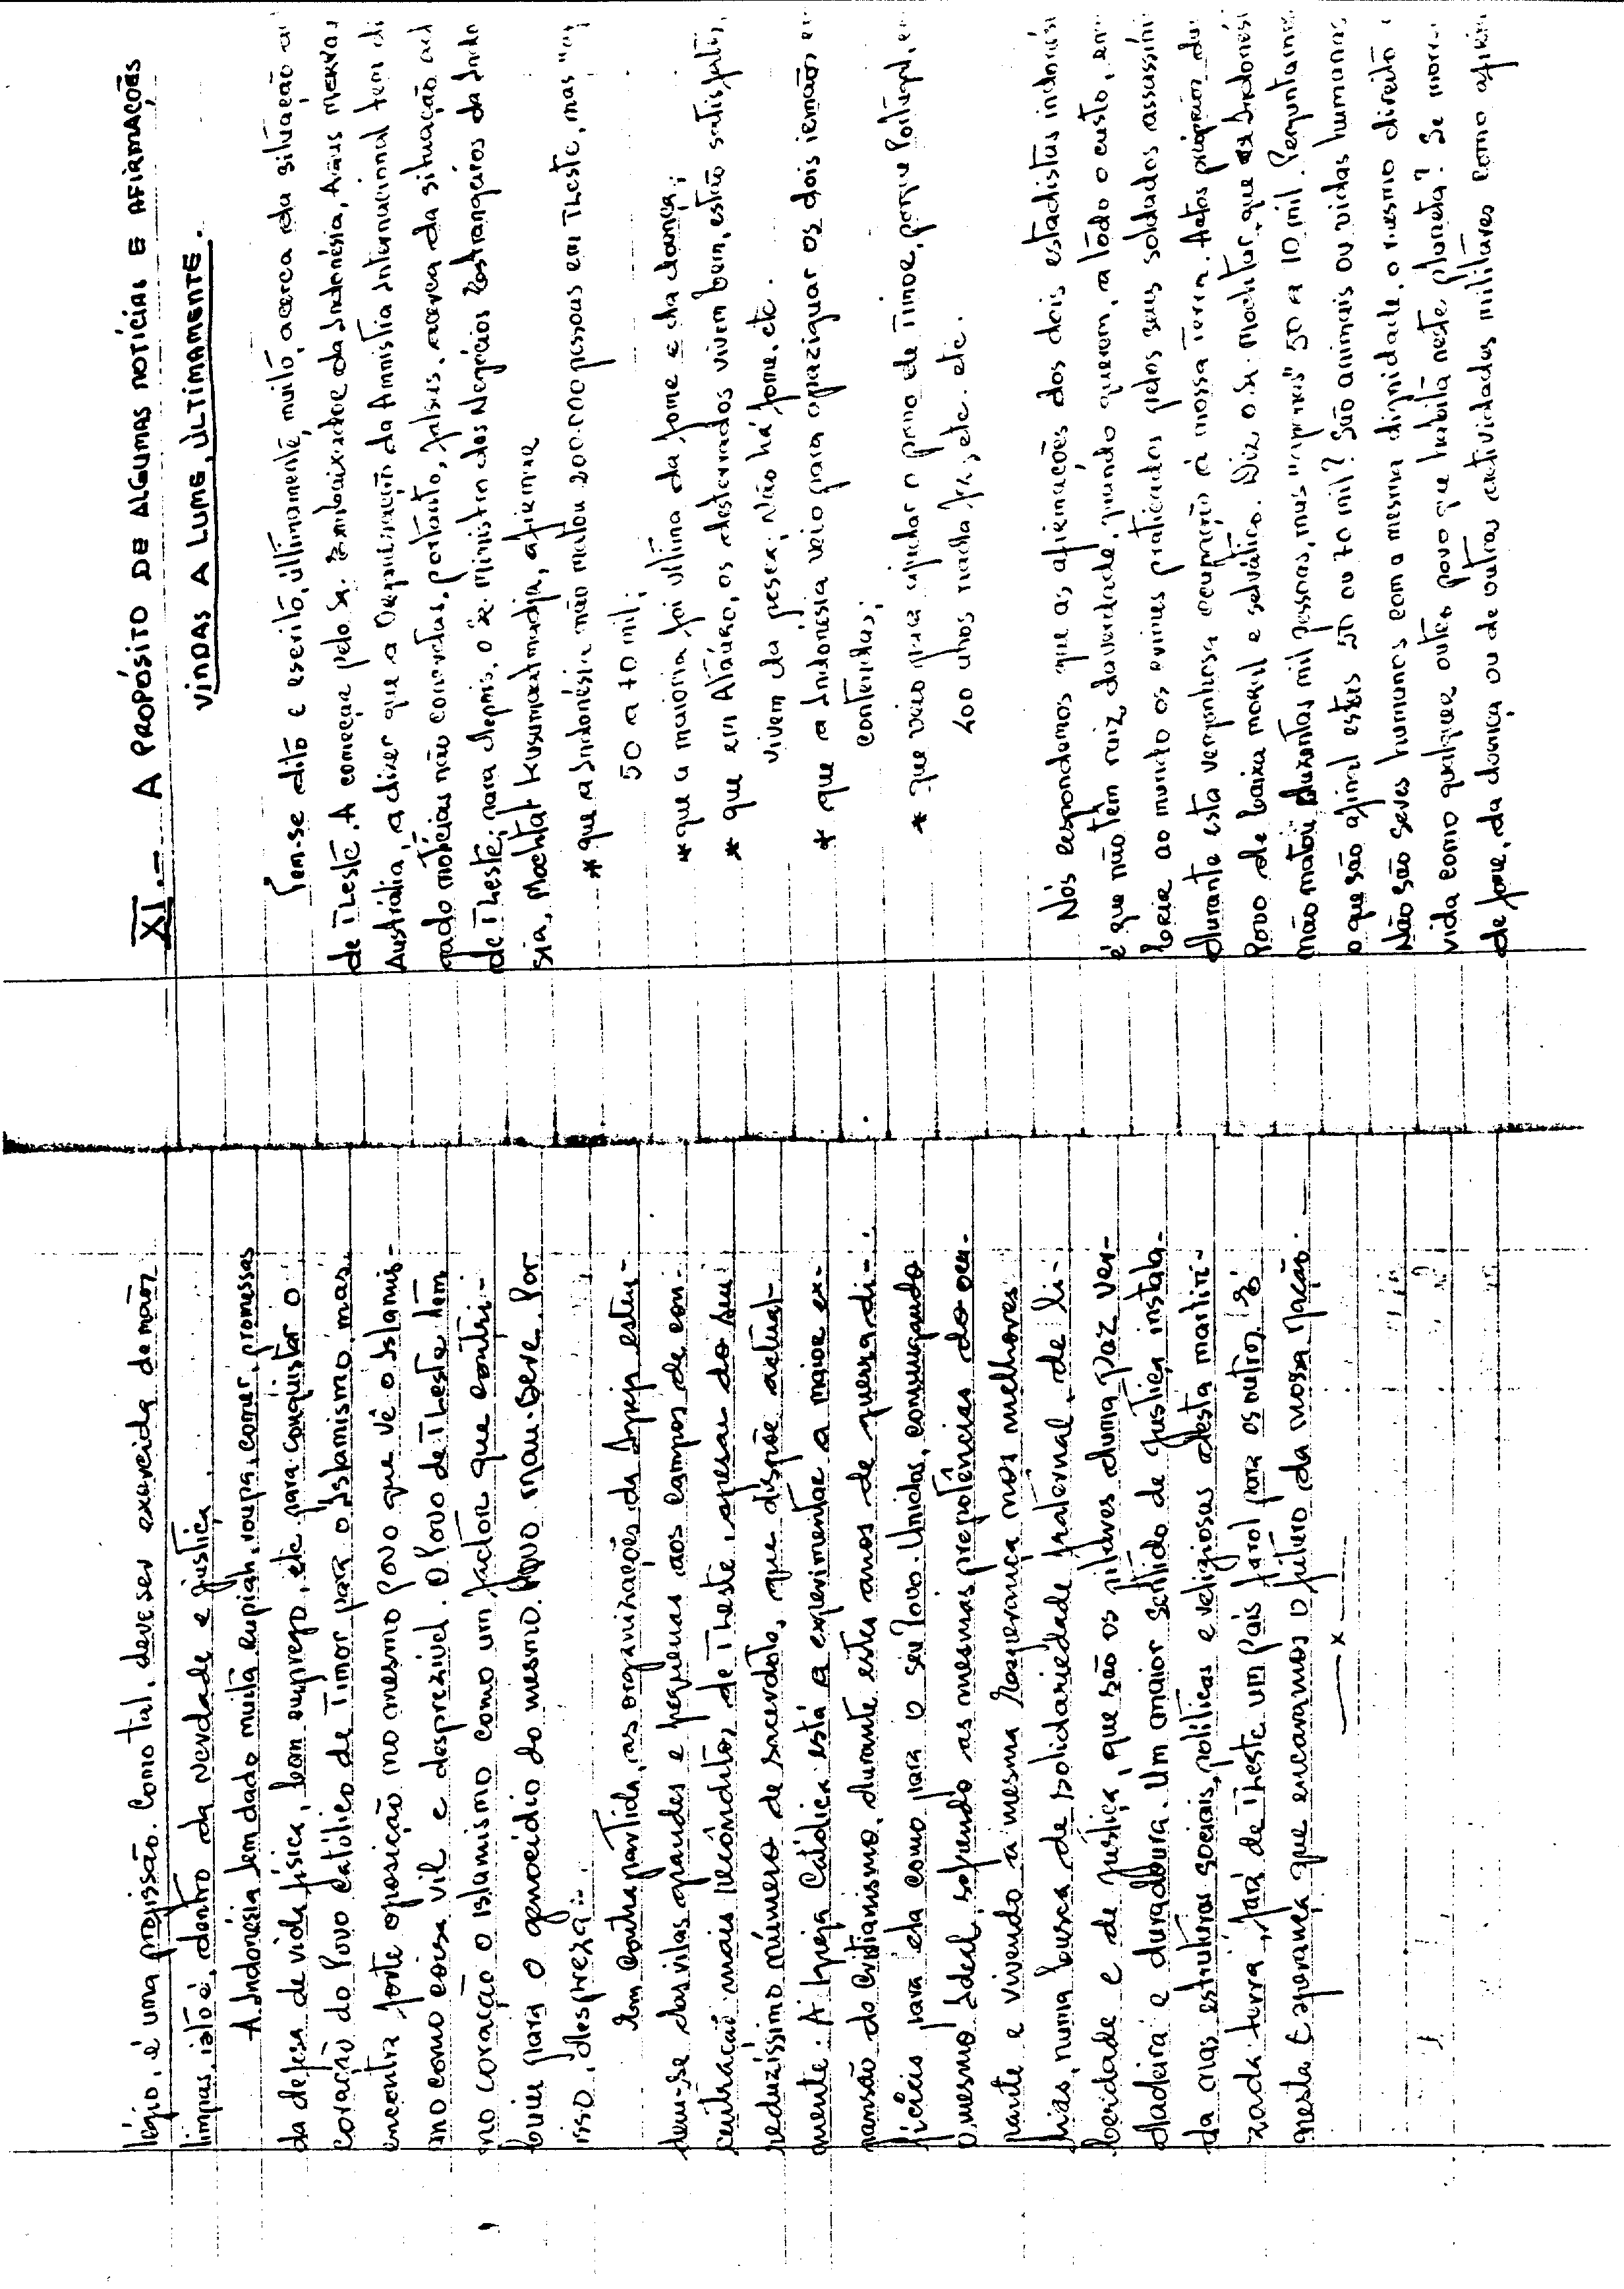 légio, é uma profissão. Como tal, deve ser exercida de mãos
limpas, isto é, dentro da verdade e justiça.
A Indonésia tem dado muita rupiah, roupa, comer, promessas
da defesa de vida física, bom emprego, etc para conquistar o
coração do Povo Católico de Timor para o Islamismo, mas,
encontra forte oposição no mesmo Povo que vê o Islamis-
mo como coisa vil e desprezível. O Povo de TLeste tem
no coração o Islamismo como um factor que contri-
buiu para o genocídio do mesmo Povo Mau-Bere. Por
isso, despreza-
Em contrapartida, as organizações da Igreja esten-
dem-se das vilas grandes e pequenas aos campos de con-
centração mais recônditos de TLeste, apesar do seu
reduzíssimo número de sacerdotes, que dispõe actual-
mente. A Igreja Católica está a experimentar a maior ex-
pansão do Cristianismo, durante estes anos de guerra di-
fíceis para ela como para o seu Povo. Unidos, comungando
o mesmo Ideal, sofrendo as mesmas prepotências do ocu-
pante e vivendo a mesma Esperança nos melhores
dias, numa busca de solidariedade fraternal, de li-
berdade e de justiça, que são os pilares duma Paz ver-
dadeira e duradoura. Um maior sentido de Justiça instala-
da nas estruturas sociais, políticas e religiosas desta martiri-
zada terra, fará de TLeste um País farol para os outros. Só
nesta Esperança que encaramos o futuro da nossa Nação.
—— x ——
XI.- A PROPÓSITO DE ALGUMAS NOTÍCIAS E AFIRMAÇÕES
VINDAS A LUME, ULTIMAMENTE.
Tem-se dito e escrito, ultimamente, muito, acerca da situação
de TLeste. A começar pelo Sr. Embaixador da Indonésia,
Austrália, a dizer que a Organização da Amnistia Internacional tem
gado notícias não correctas, portanto, falsas, acerca da situação
de TLeste; para depois, o Sr. Ministro dos Negócios Estrangeiros da Indo
sia, Mochtar Kusumaatmadja, afirmar
* que a Indonésia não matou 200.000 pessoas em TLeste, mas
50 a 70 mil;
* que a maioria foi vítima da fome e da doença;
* que em Ataúro, os desterrados vivem bem, estão satisfeitos,
vivem da pesca; não há fome, etc.
* que a Indonésia veio para apaziguar os dois irmãos em
contendas;
* que veio para ajudar o povo de Timor, porque Portugal, em
400 anos nada fez, etc. etc.
Nós respondemos que as afirmações dos dois estadistas indonési
é que não têm raiz da verdade, quando querem, a todo o custo,
brir ao mundo os crimes praticados pelos seus soldados
durante esta vergonhosa ocupação à nossa Terra. Actos próprios dum
Povo de baixa moral e selvático. Diz o Sr. Mochtar, que a Indonési
não matou duzentas mil pessoas, mas "apenas" 50 a 70 mil. Perguntamos
o que são afinal estas 50 ou 70 mil? São animais ou vidas humanas
Não são seres humanos com a mesma dignidade, o mesmo direito
vida como qualquer outro povo que habita neste planeta? Se
de fome, da doença ou de outras actividades militares como